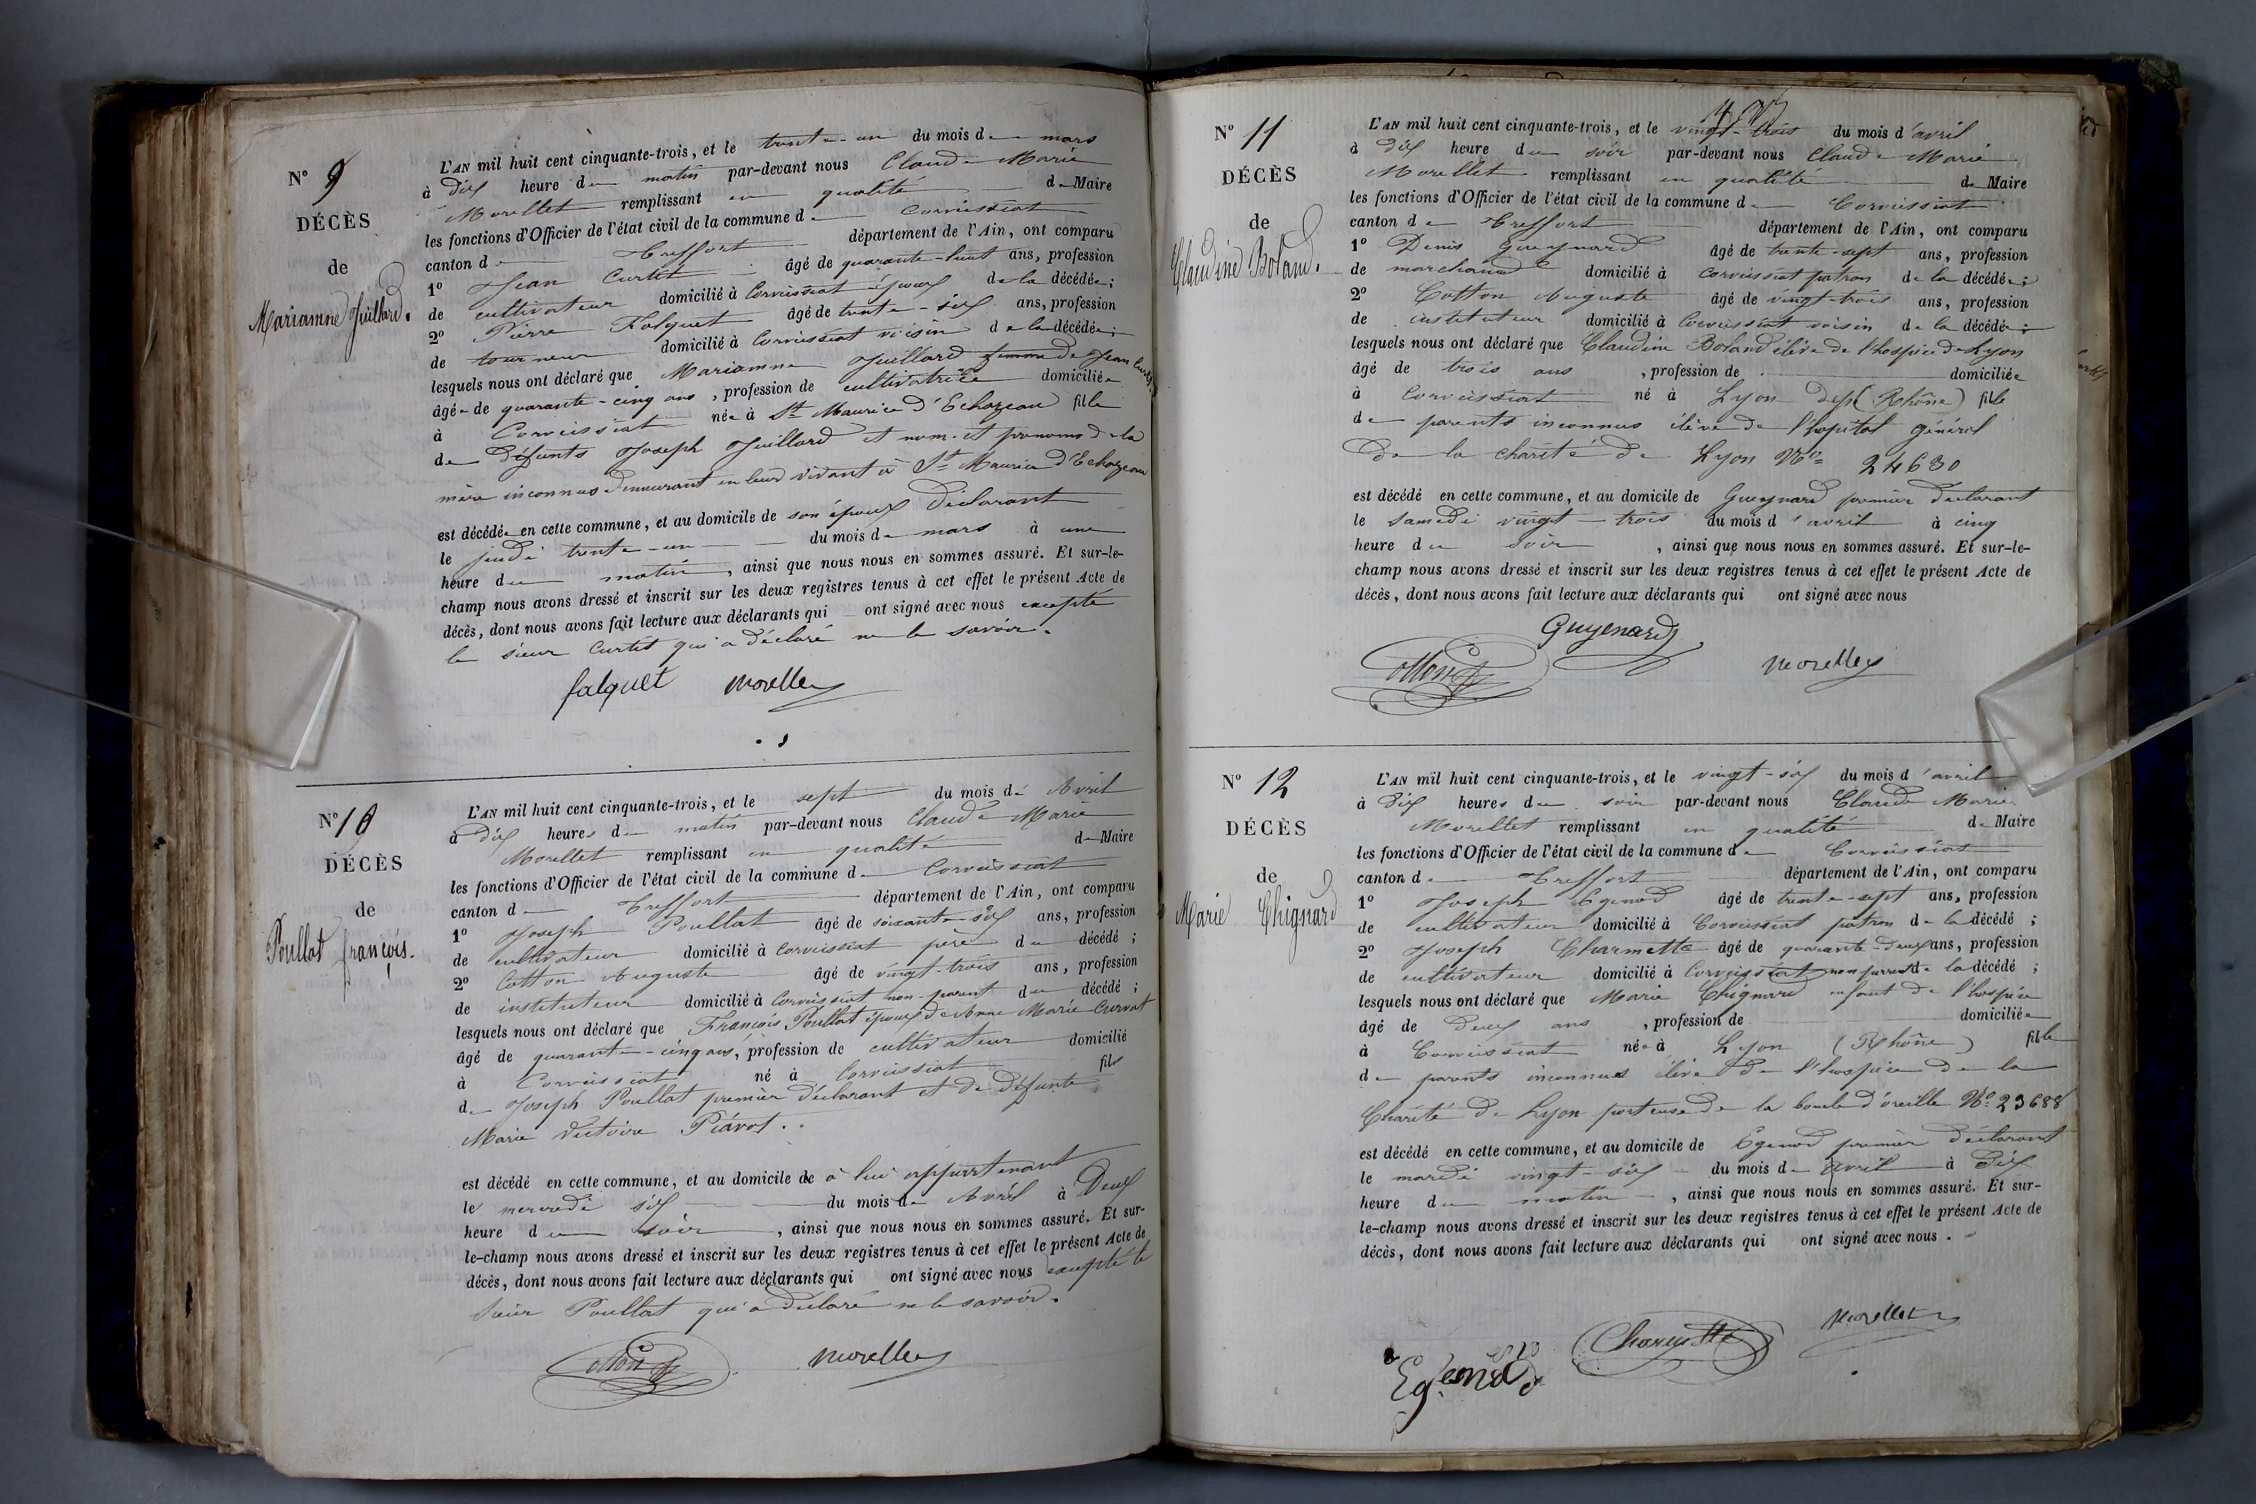 N° 9
DÉCÈS
de
Mariamne Juillard.
L'AN mil huit cent cinquante-trois, et le trente-un du mois de mars
à dix heure du matin par-devant nous Claude Marie
Morellet remplissant en qualité de Maire
les fonctions d'Officier de l'état civil de la commune de Corveissiat
canton de Treffort département de l'Ain, ont comparu
1° Jean Curtet âgé de quarante-huit ans, profession
de cultivateur domicilié à Corveissiat époux de la décédée;
2° Pierre Falquet âgé de trente-six ans, profession
de tourneur domicilié à Corveissiat voisin de la décédée;
lesquels nous ont déclaré que Mariamne Juillard femme de Jean Curtet
âgée de quarante-cinq ans, profession de cultivatrice domiciliée
à Corveissiat née à St Maurice d'Echazeau fille
de défunts Joseph Juillard et nom et prenoms de la
mère inconnus demeurant en leur vivant à St Maurice d'Echazeau
est décédée en cette commune, et au domicile de son époux déclarant
le jeudi trente-un du mois de mars à une
heure du matin, ainsi que nous nous en sommes assuré. Et sur-le-
champ nous avons dressé et inscrit sur les deux registres tenus à cet effet le présent Acte de
décès, dont nous avons fait lecture aux déclarants qui ont signé avec nous excepté
le sieur Curtet qui a déclaré ne le savoir.
falquet morellet
N° 10
DÉCÈS
de
Poullat françois.
L'AN mil huit cent cinquante-trois, et le sept du mois de Avril
à dix heures du matin par-devant nous Claude Marie
Morellet remplissant en qualité de Maire
les fonctions d'Officier de l'état civil de la commune de Corveissiat
canton de Treffort département de l'Ain, ont comparu
1° Joseph Poullat âgé de soixante-six ans, profession
de cultivateur domicilié à Corveissiat père du décédé;
2° Cotton Auguste âgé de vingt-trois ans, profession
de instituteur domicilié à Corveissiat non-parent du décédé;
lesquels nous ont déclaré que François Poullat époux de Anne Marie Curvat
âgé de quarante-cinq ans, profession de cultivateur domicilié
à Corveissiat né à Corveissiat fils
de Joseph Poullat premier déclarant et de défunte
Marie Victoire Piavot.
est décédé en cette commune, et au domicile de à lui appartenant
le mercredi six du mois de Avril à Deux
heure du soir, ainsi que nous nous en sommes assuré. Et sur-
le-champ nous avons dressé et inscrit sur les deux registres tenus à cet effet le présent Acte de
décès, dont nous avons fait lecture aux déclarants qui ont signé avec nous excepté le
Sieur Poullat qui a déclaré ne le savoir.
otton morellet
N° 11
DÉCÈS
de
Claudine Boland.
L'AN mil huit cent cinquante-trois, et le vingt-trois du mois d'avril
à dix heure du soir par-devant nous Claude Marie
Morellet remplissant en qualité de Maire
les fonctions d'Officier de l'état civil de la commune de Corveissiat
canton de Treffort département de l'Ain, ont comparu
1° Denis Gueynard âgé de trente-sept ans, profession
de marchand domicilié à Corveissiat patron de la décédée;
2° Cotton Auguste âgé de vingt-trois ans, profession
de instituteur domicilié à Corveissiat voisin de la décédé;
lesquels nous ont déclaré que Claudine Boland élève de l'hospice de Lyon
âgé de trois ans, profession de domiciliée
à Corveissiat né à Lyon dép (Rhône) fille
de parents inconnus élève de l'hopital général
De la charité de Lyon N° 24630
est décédé en cette commune, et au domicile de Gueynard premier déclarant
le samedi vingt-trois du mois d'avril à cinq
heure du soir, ainsi que nous nous en sommes assuré. Et sur-le-
champ nous avons dressé et inscrit sur les deux registres tenus à cet effet le présent Acte de
décès, dont nous avons fait lecture aux déclarants qui ont signé avec nous
Guyenard
otton morellet
N° 12
DÉCÈS
de
Marie Chignard
L'AN mil huit cent cinquante-trois, et le vingt-six du mois d'avril
à dix heures du soir par-devant nous Claude Marie
Morellet remplissant en qualité de Maire
les fonctions d'Officier de l'état civil de la commune de Corveissiat
canton de Treffort département de l'Ain, ont comparu
1° Joseph Egenod âgé de trente-sept ans, profession
de cultivateur domicilié à Corveissiat patron de la décédé;
2° Joseph Charmette âgé de quarante-deux ans, profession
de cultivateur domicilié à Corveissiat non parent de la décédé;
lesquels nous ont déclaré que Marie Chignard enfant de l'hospice
âgé de deux ans, profession de domiciliée
à Corveissiat née à Lyon (Rhône) fille
de parents inconnus élève de l'hospice de la
Charité de Lyon porteuse de la boucle d'oreille N° 23688
est décédé en cette commune, et au domicile de Egenod premier déclarant
le mardi vingt-six du mois de avril à dix
heure du matin, ainsi que nous nous en sommes assuré. Et sur-
le-champ nous avons dressé et inscrit sur les deux registres tenus à cet effet le présent Acte de
décès, dont nous avons fait lecture aux déclarants qui ont signé avec nous.
Egenod Charmette morellet